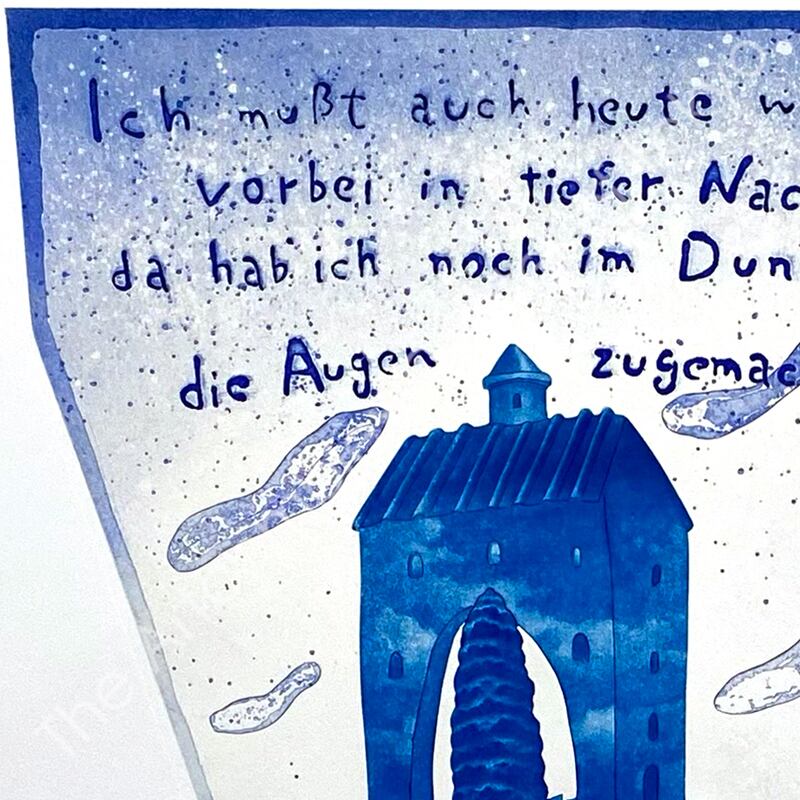 Ich mußt auch heute w
vorbei in tiefer Nac
da hab ich noch im Dun
die Augen zugemac